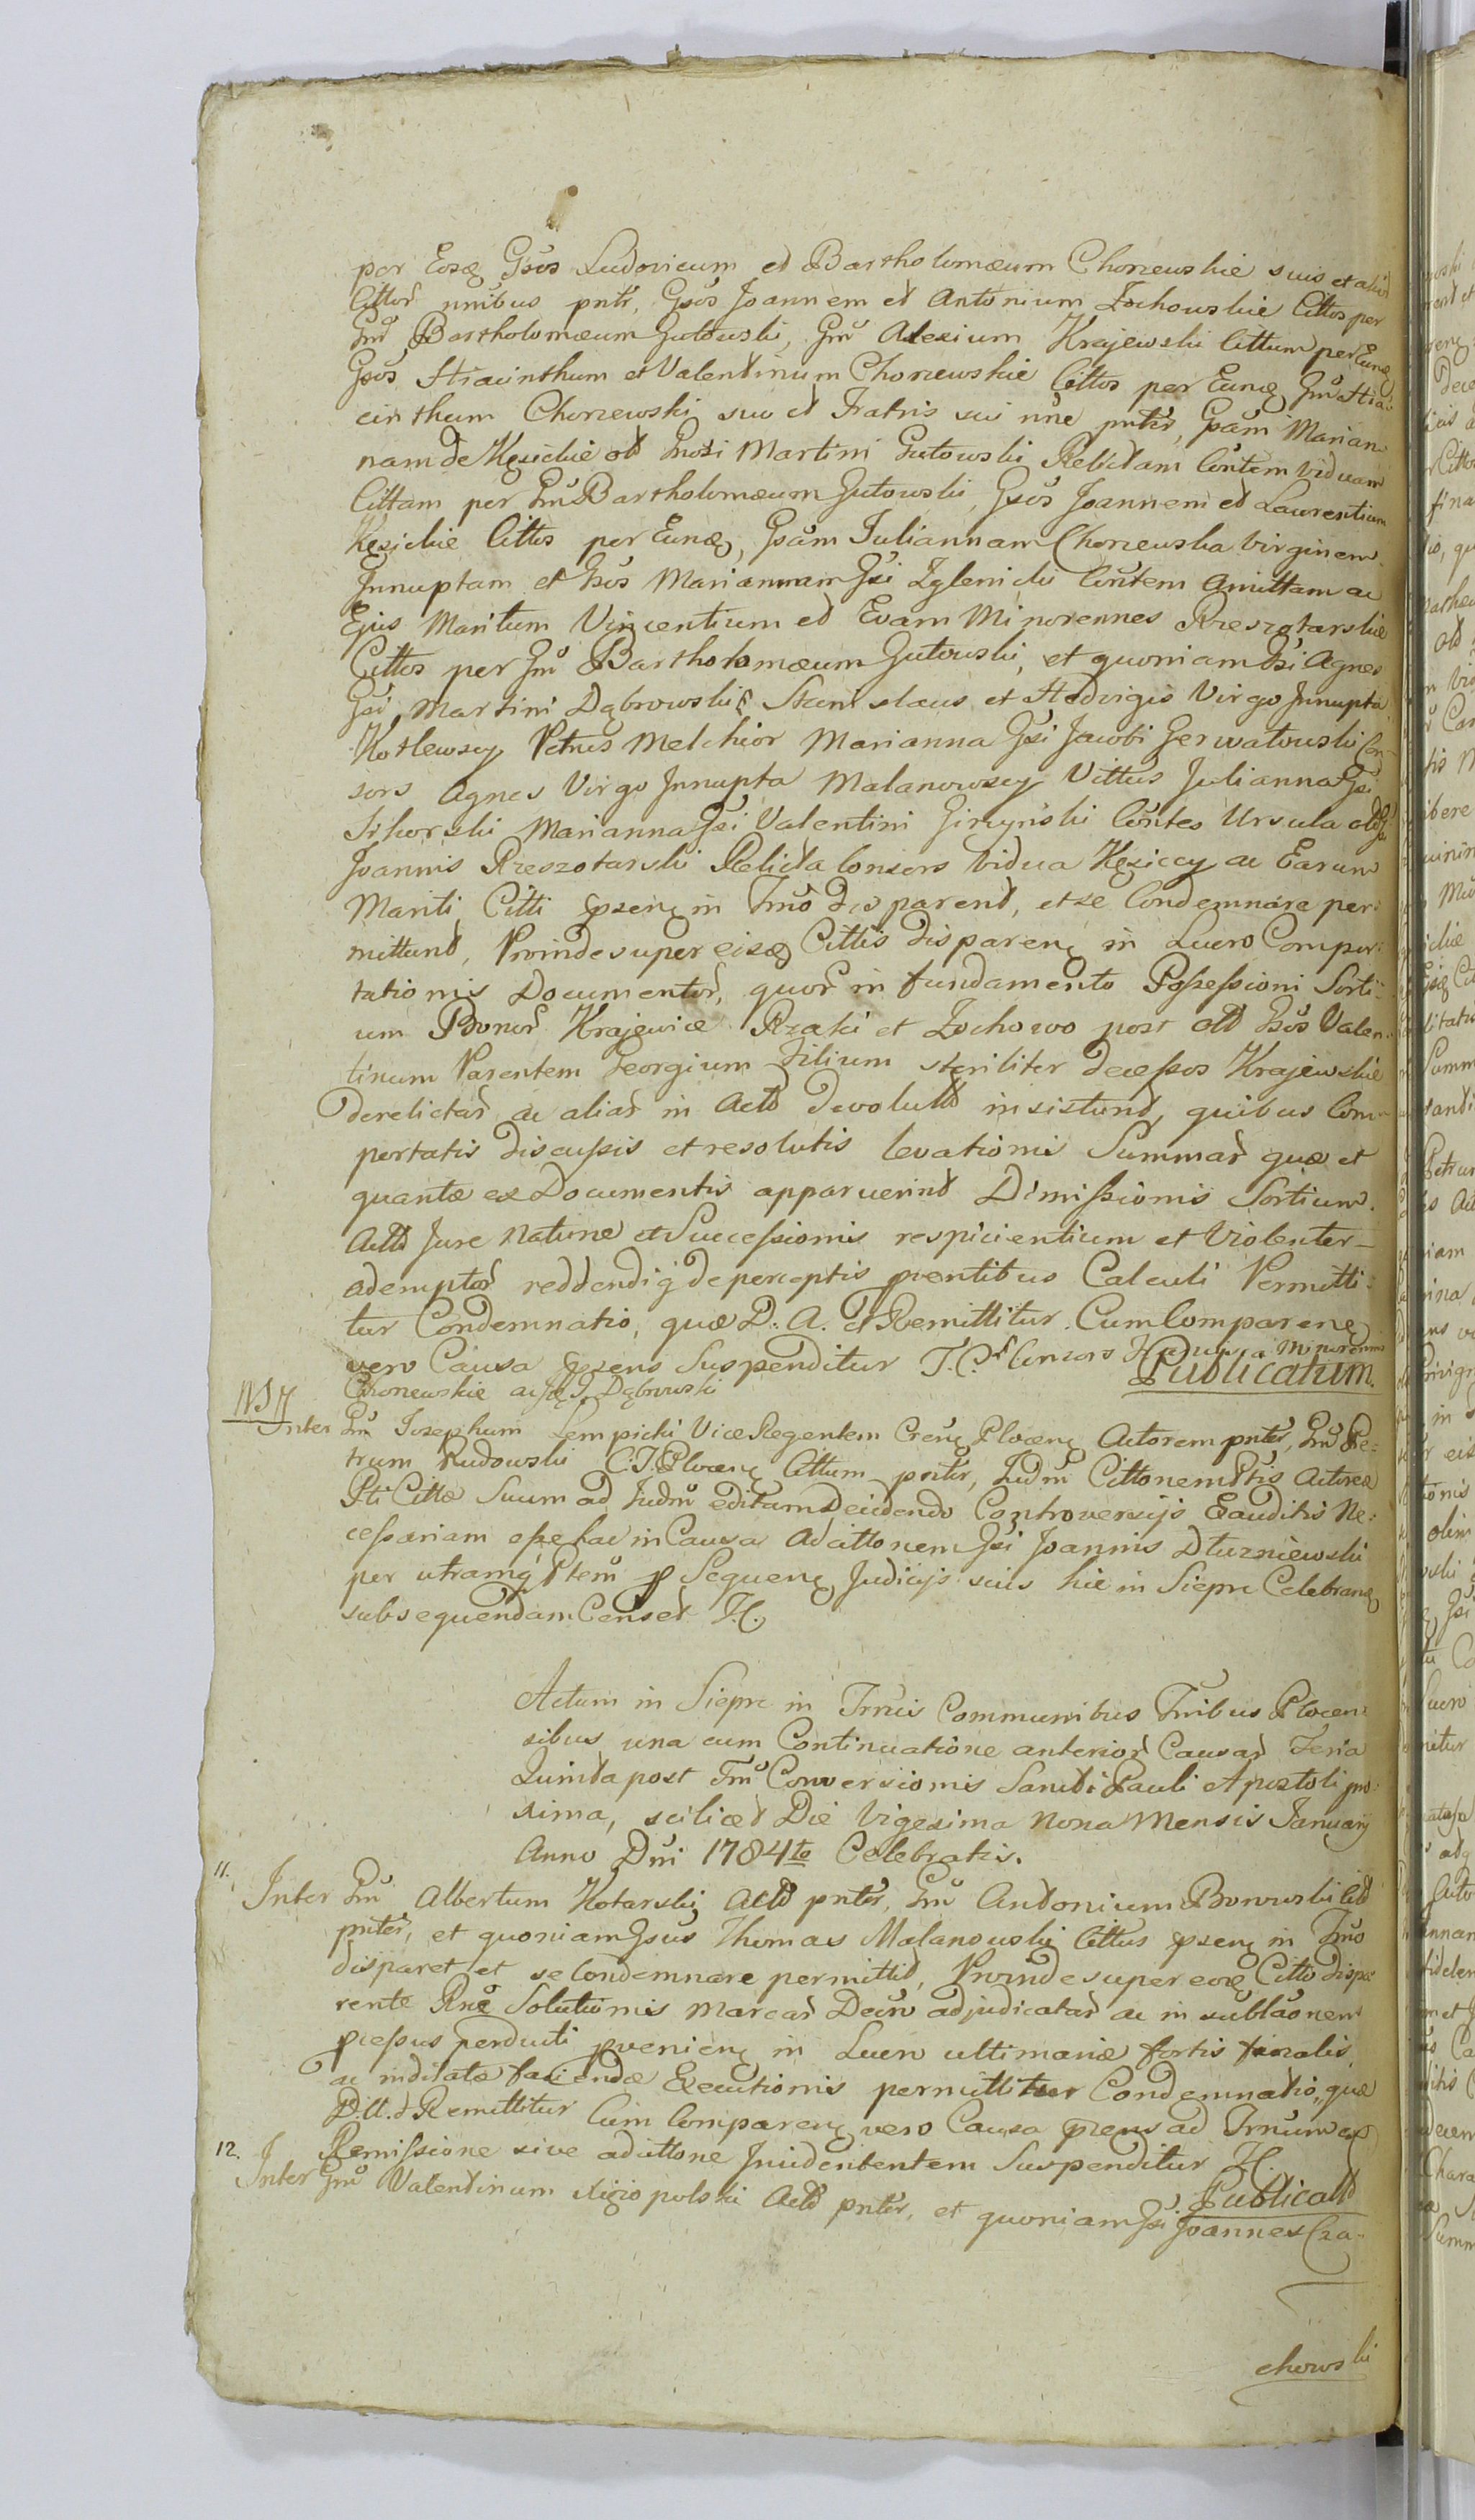 per Eosq Gsos Ludovicum et Bartholomæum Chorzewskie suis et alior
Cittor nnibus pntr, Gsos Joannem et Antonium Zochowskie Cittos per
Gnu Bartholomæum Gutowski, Gnu Alexium Krajewski Cittum per Eunq
Gsos Hiacinthum et Valentinum Chorzewskie Cittos per Eunq Gnu Hia-
cinthum Chorzewski suo et Fratris sui nne pntr, Gsam Marian-
nam de Kęsickie olt Gnosi Martini Gutowski Relictam Contem viduam
Cittam per Gnu Bartholomæum Gutowski, Gsos Joannem et Laurentium
Kęsickie Cittos per Eunq, Gsam Juliannam Chorzewska Virginem
Innuptam et Gsos Mariannam Gsi Zglenicki Contem Amittam ac
Ejus Maritum Vincentium et Evam Minorennes Rzeszotarskie
Cittos per Gnu Bartholomæum Gutowski, et quoniam Gsi Agnes
Gsi Martini Dąbrowski Stanislaus et Hedvigis Virgo Innupta
Kotlewscy Petrus Melchior Marianna Gsi Jacobi Gerwatowski Con-
sors Agnes Virgo Innupta Malanowscy Vittus Julianna Gsi
Sikorski Marianna Gsi Valentini Girzyński Contes Ursula olt Gsi
Joannis Rzeszotarski Relicta Consors Vidua Kęsiccy ac Earum
Mariti Citti pseng in Tmo disparent, et se Condemnare per-
mittunt, Proinde super eisq Cittis dispareng in Lucro Compor-
tationis Documentor, quor in fundamento Possessioni Sorti-
um Bonor Krajewice Rzaki et Zochowo post olt Gsos Valen-
tinum Parentem Georgium Filium steriliter decessos Krajewskie
derelictar ac aliar in Actt devolutt insistunt, quibus Com-
portatis discussis et resolutis levationis Summar quæ et
quantæ ex Documentis apparuerint Dimissionis Sortium
Actt Jure Naturæ et Successionis respicientium et Violenter
ademptor reddendiq de perceptis proentibus Calculi Permitti-
tur Condemnatio, quæ D. A. et Remittitur. Cum Compareng
vero Causa psens Suspenditur T. C. Consors Minorennis
Chorzewskie Dąbrowski Publicatum.
Inter Gnu Josephum Lempicki Vice Regentem Creng Ploceng Actorem pntr, Gnu Pe-
trum Rudowski C. T. Ploceng Cittum pntr, Judm Cittonem Ptis Actoreæ
Pti Cittæ Suum ad Judm editam Decidendo Controversijs Exauditis Ne-
cessariam esse hac in Causa Adcittonem Gsi Joannis Dłuzniewski
per utramq Ptem p Sequeng Judicijs suis hic in Siepre Celebrang
subsequendam Censet H.
Actum in Siepre in Trnis Communibus Tribus Plocen-
sibus una cum Continuatione anterior Causar Feria
Quinta post Tm Conversionis Sancti Pauli Apostoli pro-
xima, scilicet Die Vigesima Nona Mensis January
Anno Dni 1784to Celebratis.
11.
Inter Gnu Albertum Kotarski Actt pntr, Gnu Antonium Borowski Citt
pntr, et quoniam Gsus Thomas Malanowski Cittus pseng in Tmo
disparet et se Condemnare permittit, Proinde super eoq Citto dispa-
rente Rne Solutionis Marcar Decro adjudicatar ac in sublaonem
pcessus perducti pvenieng in Lucro ultimariæ fortis finalis,
ac indilatæ faciendæ Executionis permittitur Condemnatio, quæ
D. A. et Remittitur Cum Compareng vero Causa psens ad Trnum ex
Remissione sive adcittone Incidentem Suspenditur H.
Publicatt
12.
Inter Gnu Valentinum Actt pntr, et quoniam Gsi Joannes Cza-
chowski